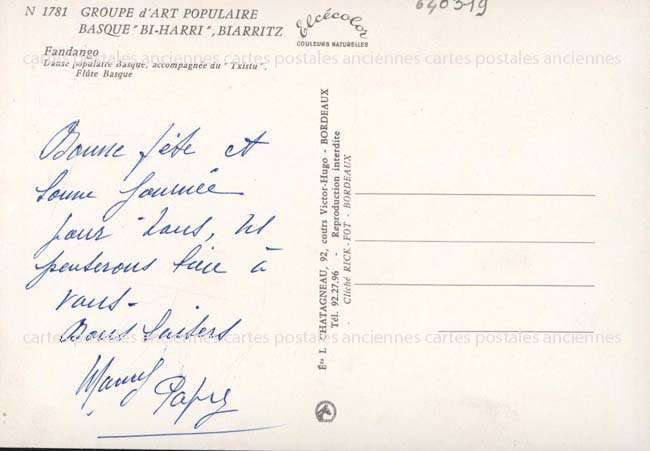 N 1781 GROUPE d'ART POPULAIRE
BASQUE "BI-HARRI", BIARRITZ
Fandango
Danse populaire Basque, accompagnée du "Txistu",
Flûte Basque
640319
Elcécolor
COULEURS NATURELLES
cartes postales anciennes cartes postales anciennes cartes postales anciennes
Bonne fête et
bonne journée
pour vous,
penserons bien à
vous.
Bons baisers
Mamy Papy
Éts L. CHATAGNEAU, 92, cours Victor-Hugo - BORDEAUX
Tél. 92.27.96 - Reproduction interdite
Cliché RICK-FOT - BORDEAUX
cartes postales anciennes cartes postales anciennes cartes postales anciennes